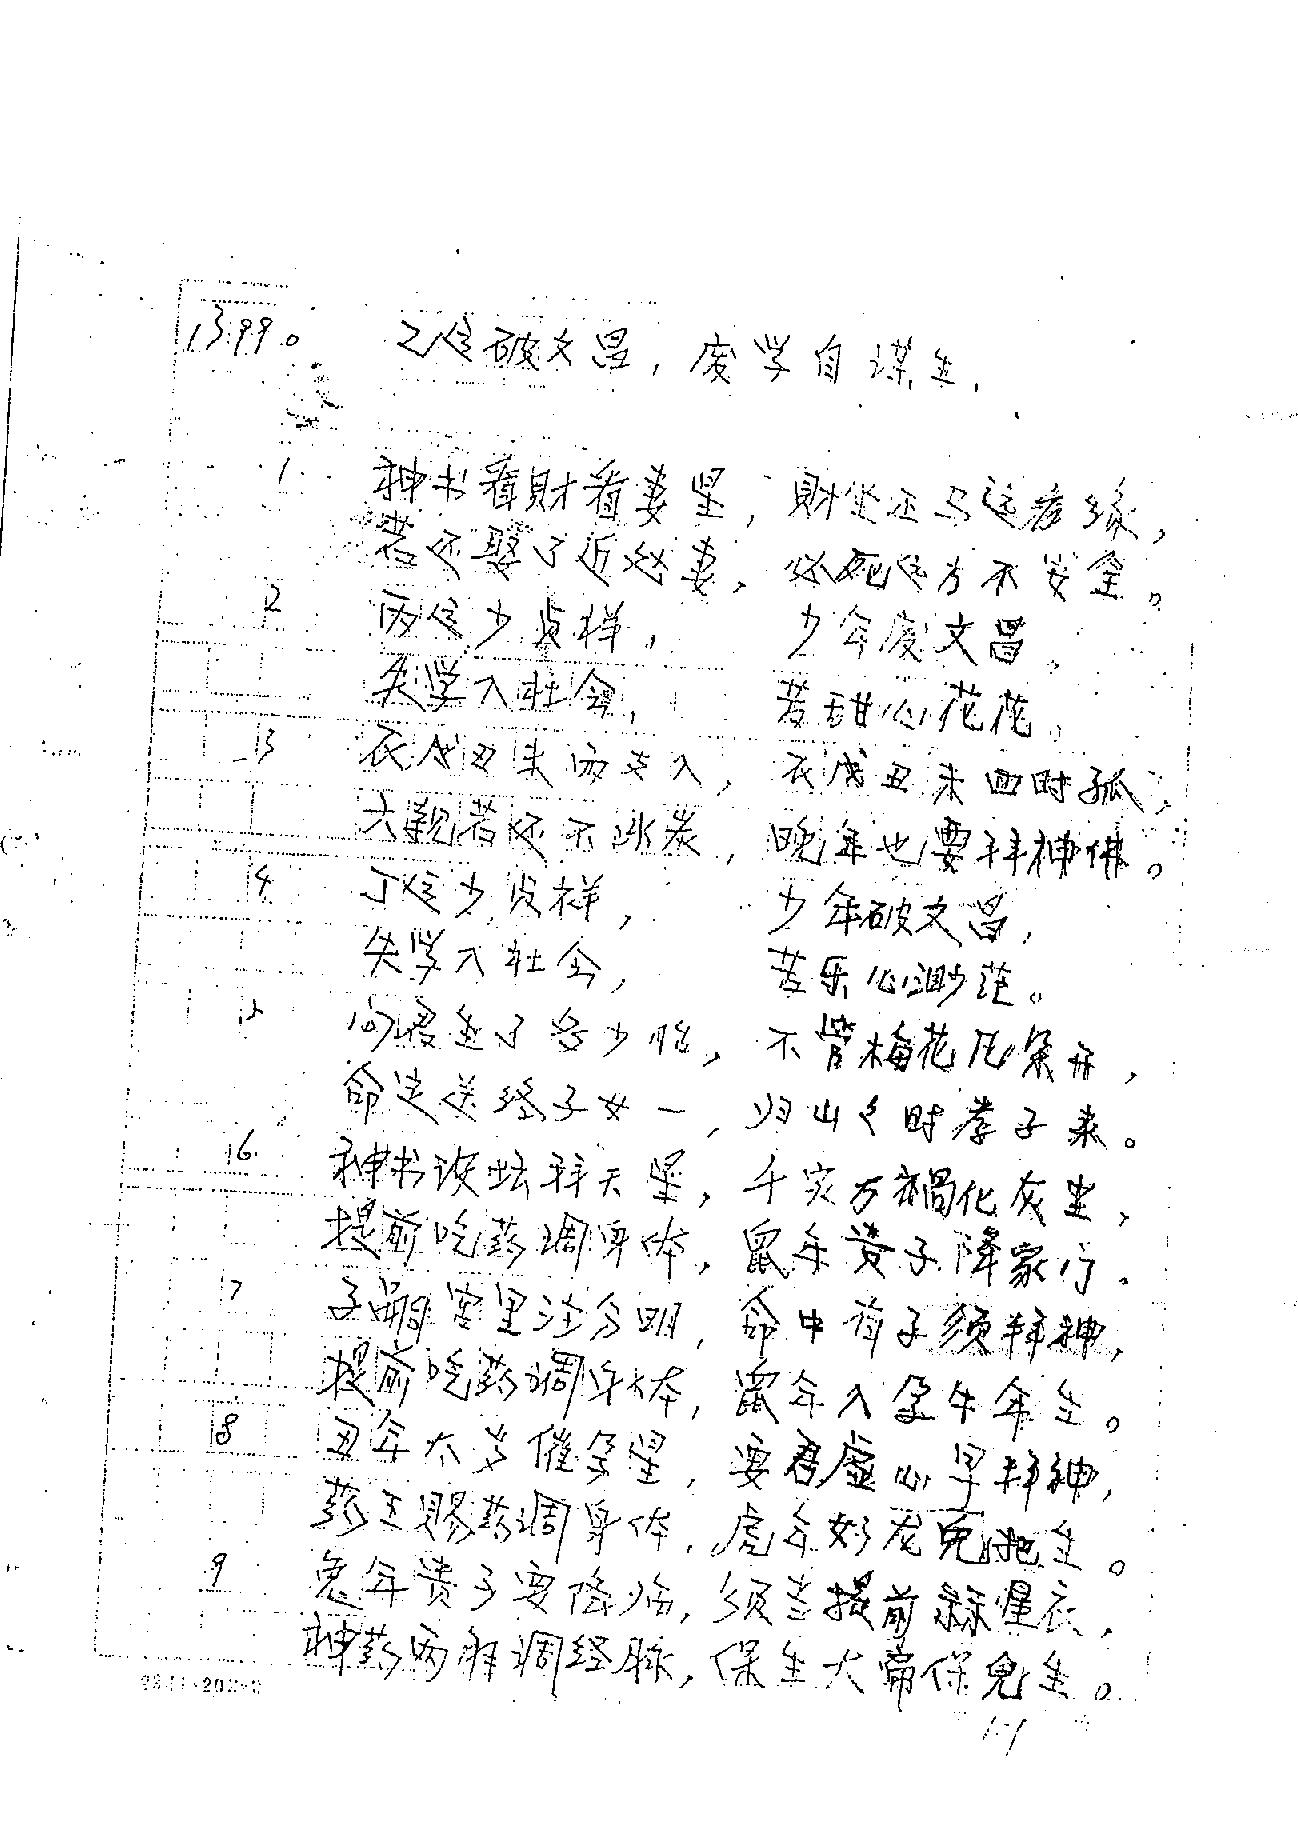 1399。 乙 破文昌，废学自谋生，
1 神书看財看妻星，財坐 马远 缘，
若还娶了近 妻，必死 方不安全。
2 两 少 样，少年废文昌，
失学入社会，苦甜心花花。
3 辰戌丑未 入，辰戌丑未四时孤，
六親若还不 炭，晚年也要拜神佛。
4 丁 少 样，少年破文昌，
失学入社会，苦乐心渺茫。
5 问君生了多少胎，不管梅花几朵开，
命 送终子女一，归山之时孝子来。
6 神书设坛拜天星，千灾万禍化灰尘，
提前吃药调身体，鼠年贵子降家门。
7 子嗣宫里注分明，命中有子须拜神，
提前吃药调身体，鼠年入孕牛年生。
8 丑年太岁催孕星，要君虚心早拜神，
药王赐药调身体，虎年好 兔 生。
9 兔年贵子要降临，须当提前 衣，
神药两解调经脉，保生大帝保兒生。